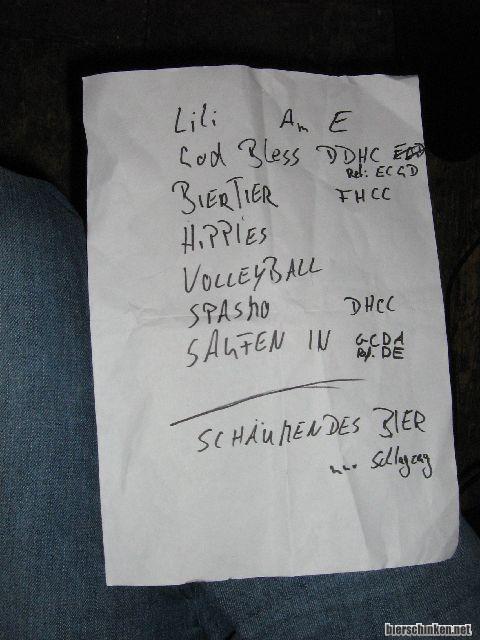 Lili Am E
God Bless DDHC
Ref: ECGD
BIERTIER FHCC
HiPPiES
VOLLEYBALL
SPASMO DHCC
SAUFEN IN GCDA
Ref. DE
SCHÄUMENDES BIER
nur Schlagzeug
bierschinken.net